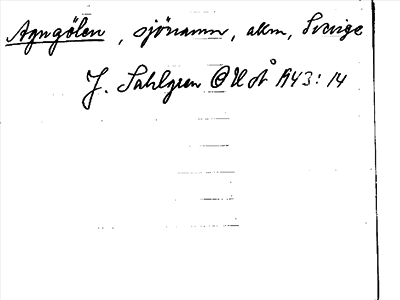 Agngölen, sjönamn, akm, Sverige
J. Sahlgren @ UUÅ 1943:14